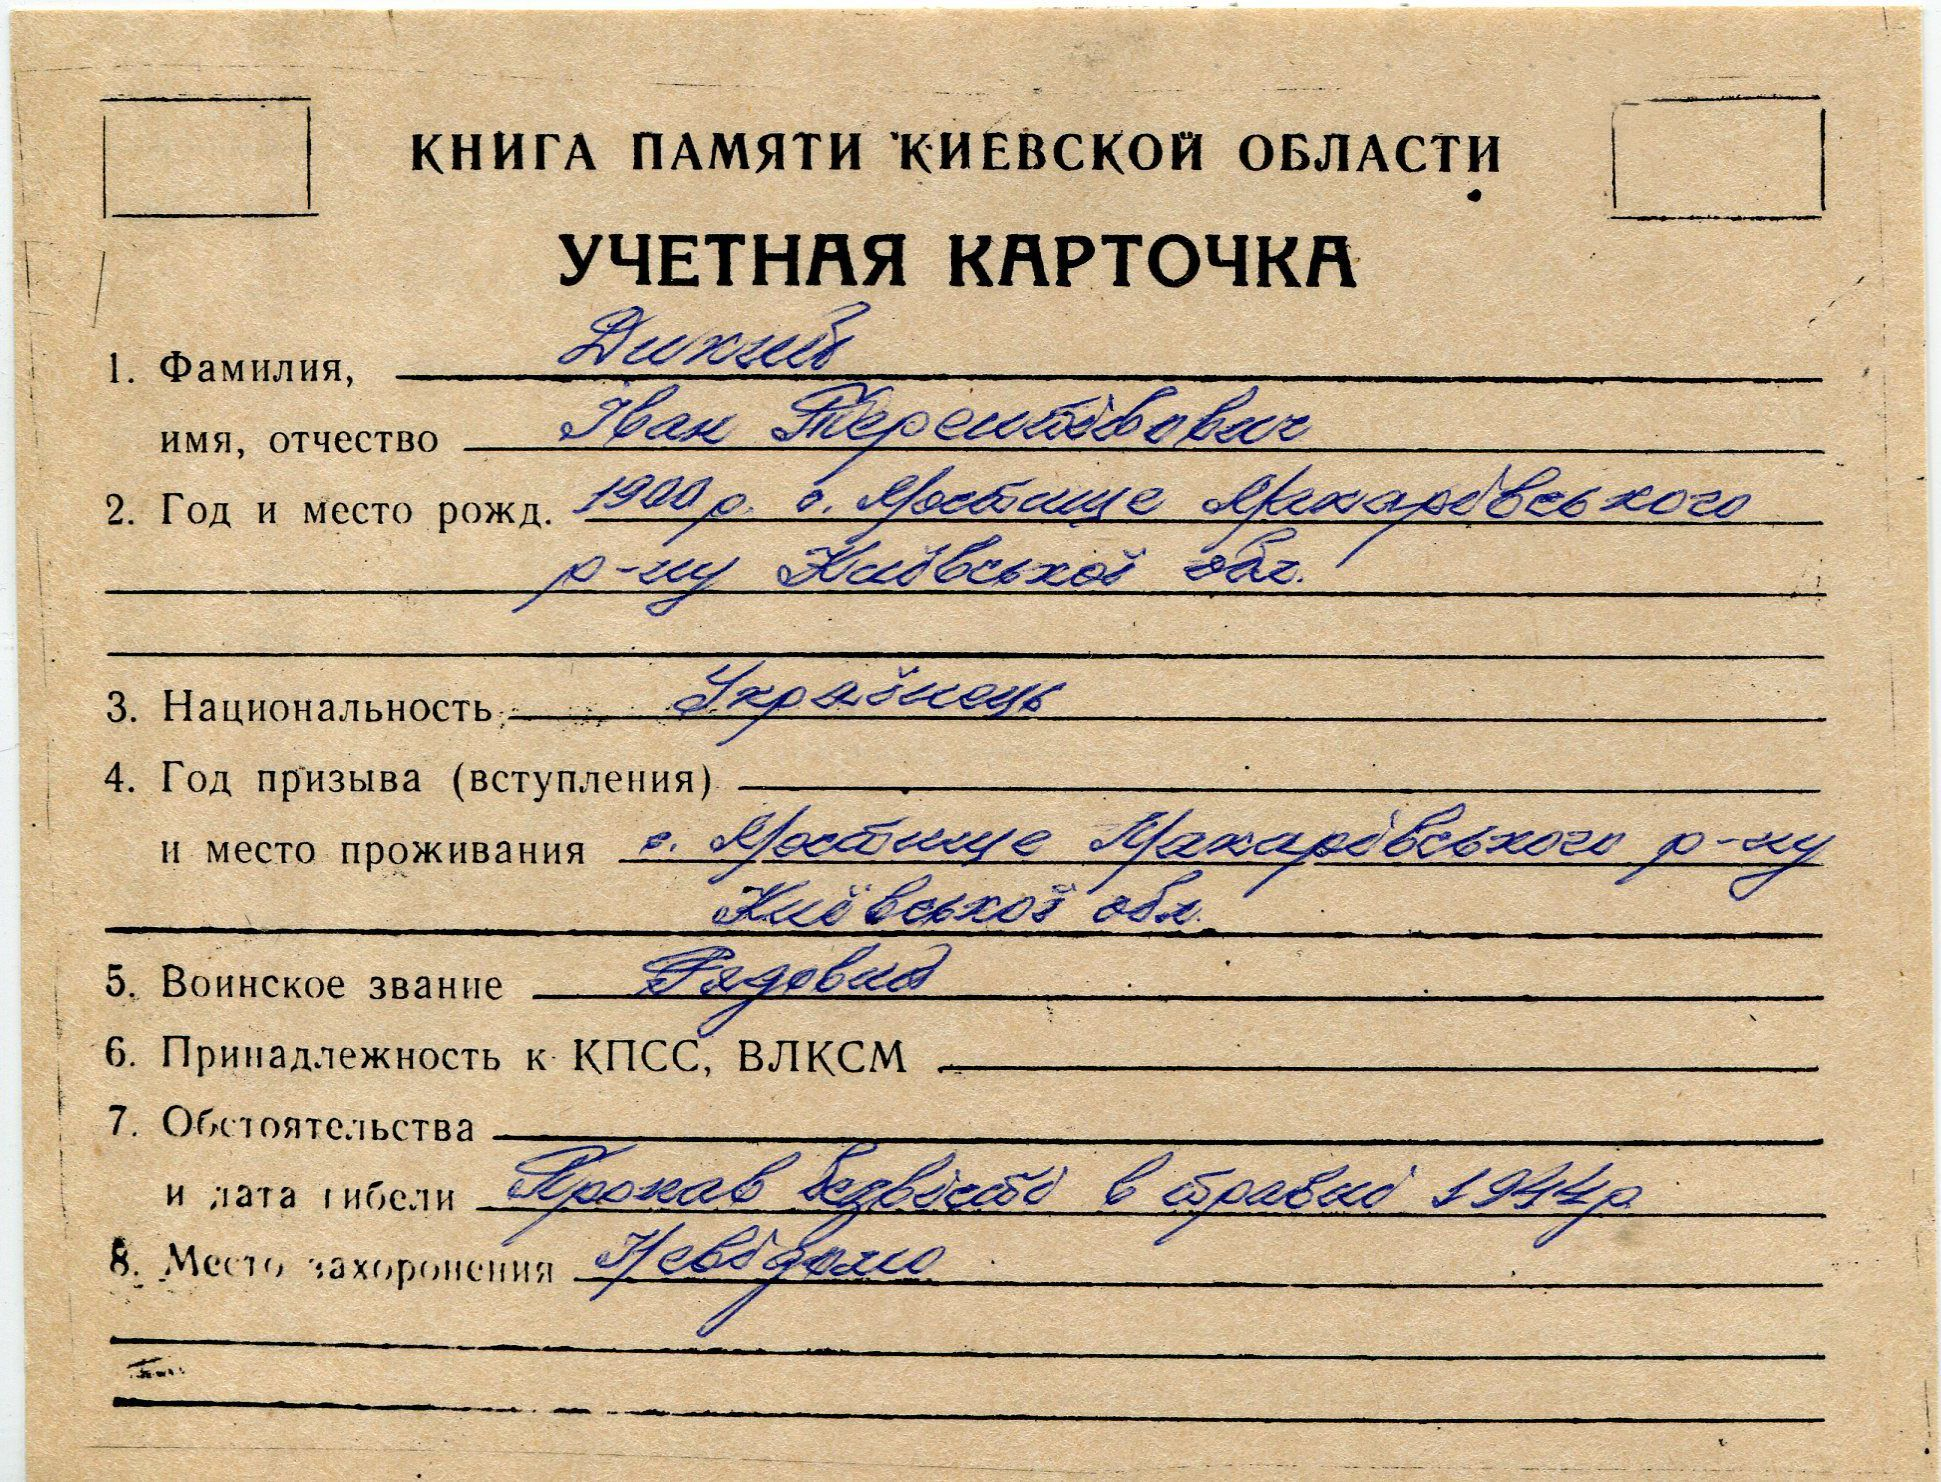 КНИГА ПАМЯТИ КИЕВСКОЙ ОБЛАСТИ
УЧЕТНАЯ КАРТОЧКА
1. Фамилия, Дикий
имя, отчество Іван Терентійович
2. Год и место рожд. 1900 р. с. Мостище Макарівського
р-ну Київської обл.
3. Национальность Українець
4. Год призыва (вступления)
и место проживания с. Мостище Макарівського р-ну
Київської обл.
5. Воинское звание Рядовий
6. Принадлежность к КПСС, ВЛКСМ
7. Обстоятельства
и дата гибели Пропав безвісті в травні 1944р
8. Место захоронения Невідомо